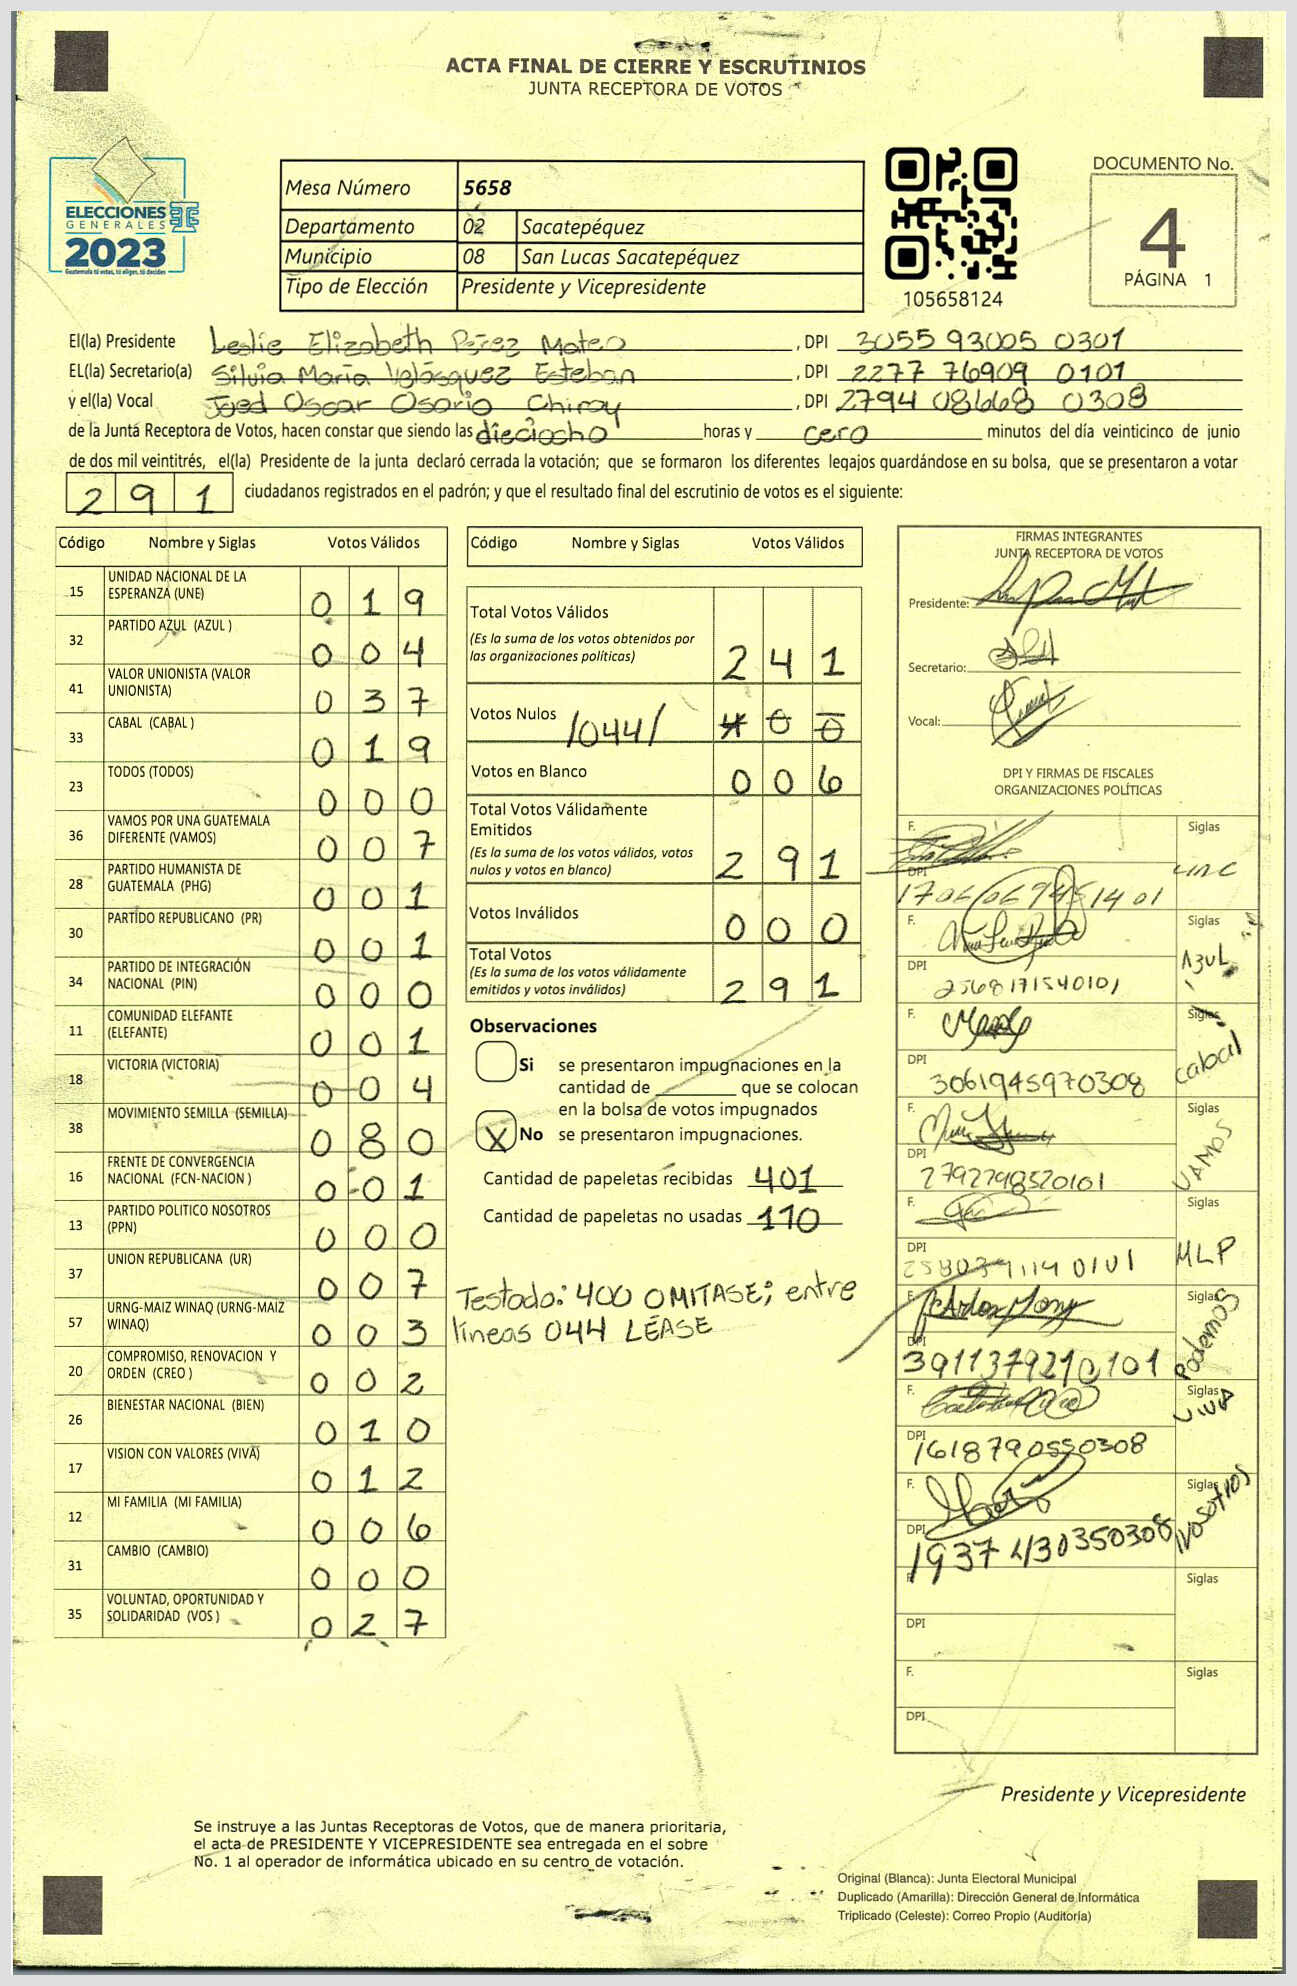 ACTA FINAL DE CIERRE Y ESCRUTINIOS
JUNTA RECEPTORA DE VOTOS
ELECCIONES
GENERALES
2023
Guatemala tú votas, tú eliges, tú decides
Mesa Número 5658
Departamento 02 Sacatepéquez
Municipio 08 San Lucas Sacatepéquez
Tipo de Elección Presidente y Vicepresidente
105658124
DOCUMENTO No.
4
PÁGINA 1
El(la) Presidente Leslie Elizabeth Pérez Mateo, DPI 3055 93005 0301
EL(la) Secretario(a) Silvia María Velásquez Esteban, DPI 2277 76909 0101
y el(la) Vocal Joed Oscar Osorio Chiroy, DPI 2794 08668 0308
de la Junta Receptora de Votos, hacen constar que siendo las dieciocho horas y cero minutos del día veinticinco de junio
de dos mil veintitrés, el(la) Presidente de la junta declaró cerrada la votación; que se formaron los diferentes legajos guardándose en su bolsa, que se presentaron a votar
291 ciudadanos registrados en el padrón; y que el resultado final del escrutinio de votos es el siguiente:
Código Nombre y Siglas Votos Válidos
15 UNIDAD NACIONAL DE LA ESPERANZA (UNE) 019
32 PARTIDO AZUL (AZUL ) 004
41 VALOR UNIONISTA (VALOR UNIONISTA) 037
33 CABAL (CABAL ) 019
23 TODOS (TODOS) 000
36 VAMOS POR UNA GUATEMALA DIFERENTE (VAMOS) 007
28 PARTIDO HUMANISTA DE GUATEMALA (PHG) 001
30 PARTIDO REPUBLICANO (PR) 001
34 PARTIDO DE INTEGRACIÓN NACIONAL (PIN) 000
11 COMUNIDAD ELEFANTE (ELEFANTE) 001
18 VICTORIA (VICTORIA) 004
38 MOVIMIENTO SEMILLA (SEMILLA) 080
16 FRENTE DE CONVERGENCIA NACIONAL (FCN-NACION ) 001
13 PARTIDO POLITICO NOSOTROS (PPN) 000
37 UNION REPUBLICANA (UR) 007
57 URNG-MAIZ WINAQ (URNG-MAIZ WINAQ) 003
20 COMPROMISO, RENOVACION Y ORDEN (CREO ) 002
26 BIENESTAR NACIONAL (BIEN) 010
17 VISION CON VALORES (VIVA) 012
12 MI FAMILIA (MI FAMILIA) 006
31 CAMBIO (CAMBIO) 000
35 VOLUNTAD, OPORTUNIDAD Y SOLIDARIDAD (VOS ) 027
Código Nombre y Siglas Votos Válidos
Total Votos Válidos
(Es la suma de los votos obtenidos por
las organizaciones políticas) 241
Votos Nulos /044/ 400
Votos en Blanco 006
Total Votos Válidamente
Emitidos
(Es la suma de los votos válidos, votos
nulos y votos en blanco) 291
Votos Inválidos 000
Total Votos
(Es la suma de los votos válidamente
emitidos y votos inválidos) 291
Observaciones
Si se presentaron impugnaciones en la
cantidad de ________ que se colocan
en la bolsa de votos impugnados
X No se presentaron impugnaciones.
Cantidad de papeletas recibidas 401
Cantidad de papeletas no usadas 110
Testado: 400 OMITASE; entre
líneas 044 LÉASE
FIRMAS INTEGRANTES
JUNTA RECEPTORA DE VOTOS
Presidente:
Secretario:
Vocal:
DPI Y FIRMAS DE FISCALES
ORGANIZACIONES POLÍTICAS
F. Siglas
DPI
F. Siglas AZUL
DPI 2568171540101
F. Siglas Cabal
DPI 3061945970308
F. Siglas VAMOS
DPI 2792798520101
F. Siglas MLP
DPI
F. Siglas Podemos
DPI 3911379210101
F. Siglas VIVA
DPI 1618790550308
F. Siglas Nosotros
DPI 1937430350308
F. Siglas
DPI
F. Siglas
DPI
Presidente y Vicepresidente
Se instruye a las Juntas Receptoras de Votos, que de manera prioritaria,
el acta de PRESIDENTE Y VICEPRESIDENTE sea entregada en el sobre
No. 1 al operador de informática ubicado en su centro de votación.
Original (Blanca): Junta Electoral Municipal
Duplicado (Amarilla): Dirección General de Informática
Triplicado (Celeste): Correo Propio (Auditoría)